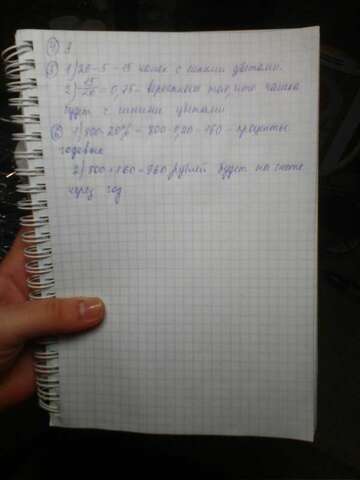 ④ 3
⑤ 1) 20 - 5 = 15 чашек с синими цветами.
2) 15/20 = 0,75 - вероятность того, что чашка
будет с синими цветами
⑥ 1) 800·20% = 800·0,20 = 160 - проценты
годовые
2) 800 + 160 = 960 рублей будет на счете
через год